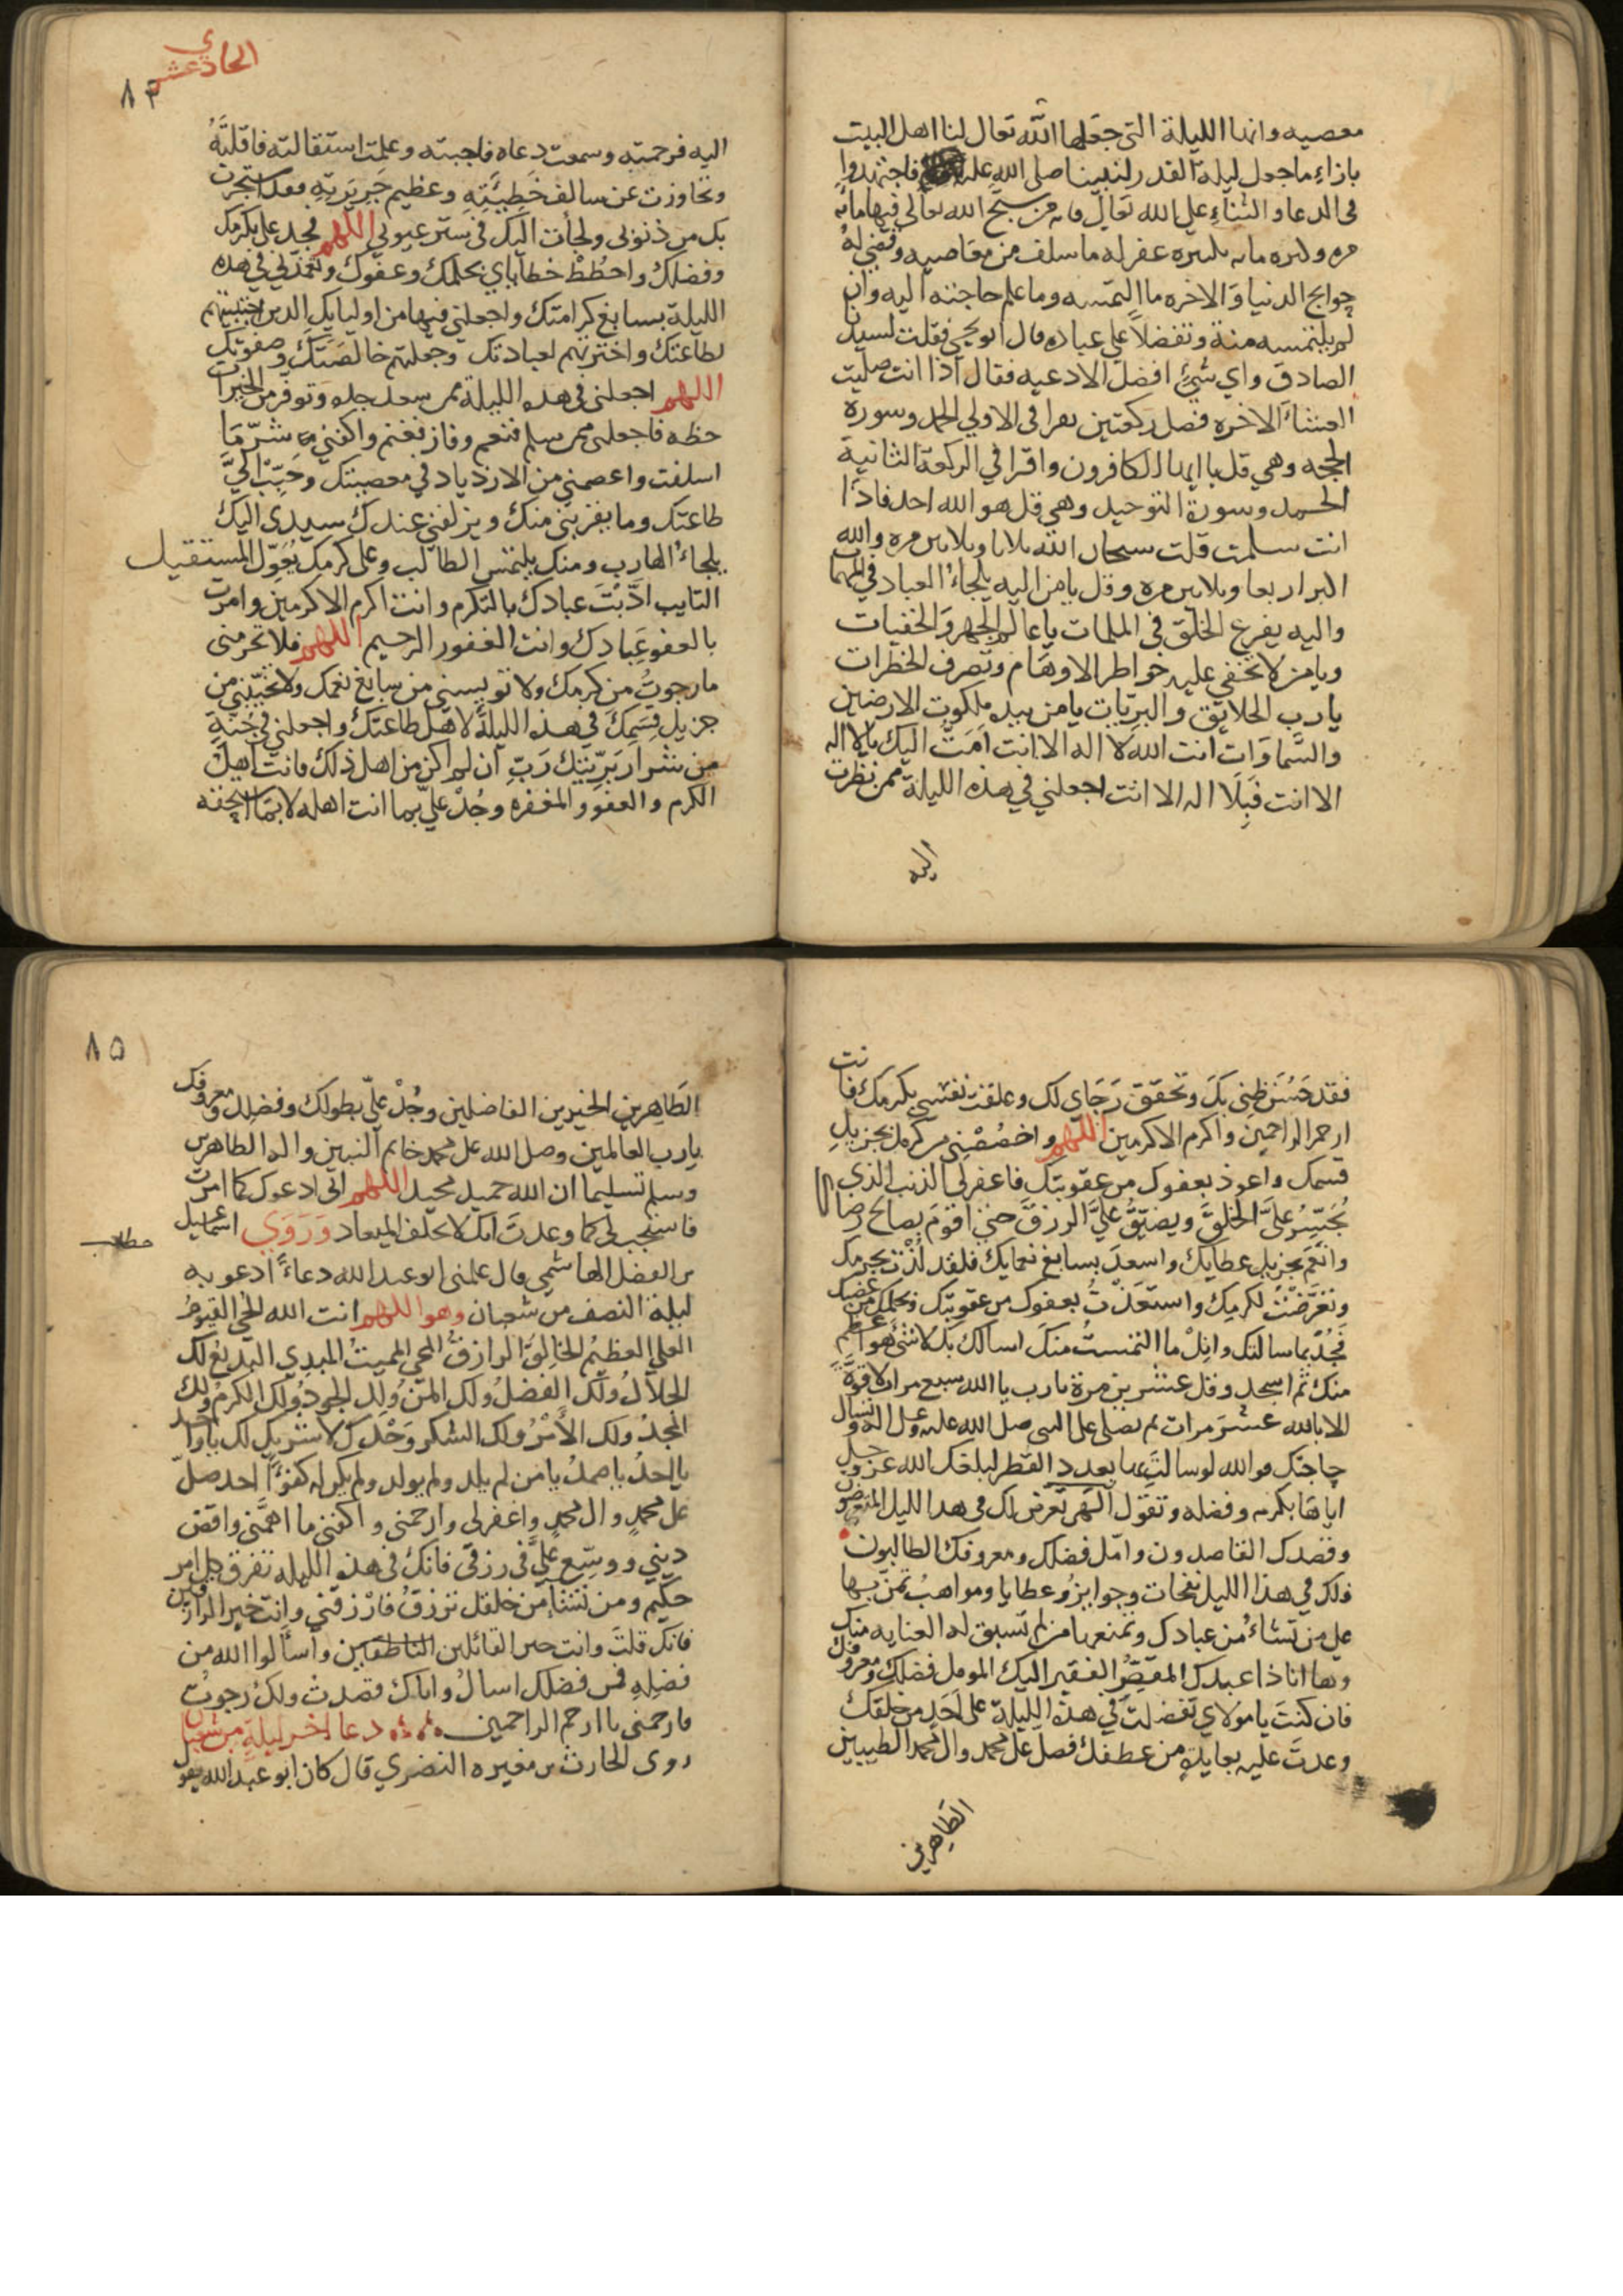 معصيه وانها الليلة التى جعلها الله تعال لنا اهل البيت
بازاء ما جعل ليلة القدر لنبينا صلى الله عليه فاجتهدوا
فى الدعا والثناء على الله تعالى فانه من سبح الله تعالى فيها مائة
مره وكبره مايه تكبيره غفر له ما سلف من معاصيه وقضى له
حوايج الدنيا والاخره ما التمسه وما علم حاجته اليه وان
لم يلتمسه منة وتفضلاً على عباده قال ابو يحيى فقلت لسيدى
الصادق واي شئ افضل الادعيه فقال اذا انت صليت
العشاء الاخره فصل ركعتين تقرا فى الاولي الحمد وسورة
الجحد وهي قل يا ايها الكافرون واقرا في الركعة الثانية
الحمد وسورة التوحيد وهي قل هو الله احد فاذا
انت سلمت قلت سبحان الله ثلاثا وثلاثين مره والله
اكبر اربعا وثلاثين مره وقل يا من اليه يلجاء العباد في المهمات
واليه يفزع الخلق في الملمات يا عالم الجهر والخفيات
ويا من لا تخفي عليه خواطر الاوهام وتصرف الخطرات
يا رب الخلايق والبريّات يا من بيده ملكوت الارضين
والسَّماوَات انت الله لا اله الا انت اَمُتُّ اليك بلا اله
الا انت فَبِلَا اله الا انت اجعلني في هذه الليلة ممن نظرت
اليه
الحادي عشر
٨٣
اليه فرحمته وسمعت دعاه فاجبته وعلمت استقالته فاقلتَهُ
وتجاوزت عن سالف خَطيئَتِهِ وعظيم جَريرَتِهِ فقد استجرت
بك من ذنوبى ولجأت اليك في ستر عيوبي اللهم فجد على بكرمك
وفضلك واحطُطْ خطاياي بحلمك وعفوك وتغمدني في هذه
الليلة بسابغ كرامتك واجعلني فيها من اوليايك الذين اجتبيتهم
لطاعتك واخترتهم لعبادتك وجعلتهم خالصَتَكَ وصفوتك
اللهم اجعلنى فى هذه الليلة ممن سعد جده وتوفر من الخيرات
حظه فاجعلنى ممن سلم فنعم وفاز فغنم واكفني شرّ مَا
اسلفت واعصمني من الازدياد في معصيتك وحَبِّبْ اليَّ
طاعتك وما يقربني منك ويزلفني عندك سيدى اليك
يلجاء الهارب ومنك يلتمس الطالب وعلى كرمك يُعوّل المستقيل
التايب ادَّبْتَ عبادك بالتكرم وانت اكرم الاكرمين وامرت
بالعفو عِبَادك وانت الغفور الرحيم اللهم فلا تحرمنى
ما رجوتُ من كرمك ولا تويسني من سابغ نعمك ولا تخيّبني من
جزيل قِسَمِكَ في هذه الليلةً لاهل طاعتك واجعلني في جُنّةٍ
من شرار بَرِيَّتِك رَبِّ ان لم اكن من اهل ذلك فانت اهل
الكرم والعفو والمغفره وجُدْ عليّ بما انت اهله لا بمَا استحقه
فقد حَسُنَ ظني بكَ وتحقّق رَجَاي لك وعلقت نفسى بكرمك فانت
ارحم الراحمين واكرم الاكرمين اللهم واخصُصْنِي من كرمك بجزيل
قسمك واعوذ بعفوك من عقوبتك فاغفرلى الذنب الذى
يُحَبِّسُ علىَّ الخلقَّ ويضيِّقُ عليَّ الرزقَّ حتى اقومَ بصالح رضاك
وانْعَم بجزيل عطايك واسعدَ بسابغ نعمايك فلقد لُذْتُ بحرمك
وتَعَرَّضْتُ لكرمك واستعذتُ بعفوك من عقوبتك وبحلمك من غضبك
فَجُدْ بما سالتك وانِلْ ما التمستُ منكَ اسالك بك لا شئ هو اعظم
منك ثم اسجد وقل عشرين مرة يا رب يا الله سبع مرات لا قوّة
الا بالله عشرَ مرات ثم تصلى على النبى صلى الله عليه وعلى اله وتسال
حاجتك فوالله لو سالتَ بها بعدد القطر لبلغك الله عز وجل
اياها بكرمه وفضله وتقول الهي تعرض لك فى هذا الليل المتعرضون
وقصدك القاصدون وامّل فضلك ومعروفك الطالبون
ولك في هذا الليل نفحات وجوايزُ وعطايا ومواهبُ تمنّ بها
على من تشاءُ من عبادك وتمنعها من لم تسبق له العنايه منك
وها انا ذا عبدك المقصّر الفقير اليك المومل فضلك ومعروفك
فان كنتَ يا مولاي تفضلتَ في هذه الليلة على اَحَدٍ من خلقك
وعدتَ عليه بعايدةٍ من عطفك فصل على محمد وال محمد الطيبين
الطاهرين
٨٥
الطَاهِرين الخيرين الفاضلين وجُدْ عليّ بطولك وفضلك ومعروفك
يا رب العالمين وصل الله على محمد خاتم النبيين واله الطاهرين
وسلم تسليما ان الله حميد مجيد اللهم انى ادعوك كما امرت
فاستجب لى كما وعدتَ انك لا تخلف الميعاد وَرَوَي اسماعيل
مطلب
بن الفضل الهاشمي قال علمنى ابو عبد الله دعاءً ادعو به
ليلة النصف من شعبان وهو اللهم انت الله الحي القيومُ
العلي العظيمُ الخالِقُ الرازقُ المحي المميتُ المبدِي البديعُ لك
الجلالُ ولك الفضلُ ولك المنّ ولك الجودُ ولك الكرمُ ولك
المجدُ ولك الأَمْرُ ولك الشكر وَحْدَكَ لا شريك لك يا واحد
يا احدُ يا صمدُ يا من لم يلد ولم يولد ولم يكن له كفوًا احد صلّ
على محمدٍ وال محمدٍ واغفرلى وارحمنى واكفنى ما اهمَّنى واقض
ديني ووسِّع علَيَّ فى رزقى فانك فى هذه الليله تفرق كل امر
حكيم ومن تشاءُ من خلقك ترزقُ فارْزقني وانت خير الرازقين
فانك قلتَ وانت خير القائلين الناطقين وأسألوا الله من
فضلِهِ فمن فضلك اسالُ واياك قصدتُ ولك رجوتُ
فارحمنى يا ارحم الراحمين دعا اخر ليلةٍ من شعبان
روى الحارث بن مغيره النضري قال كان ابو عبد الله يقول